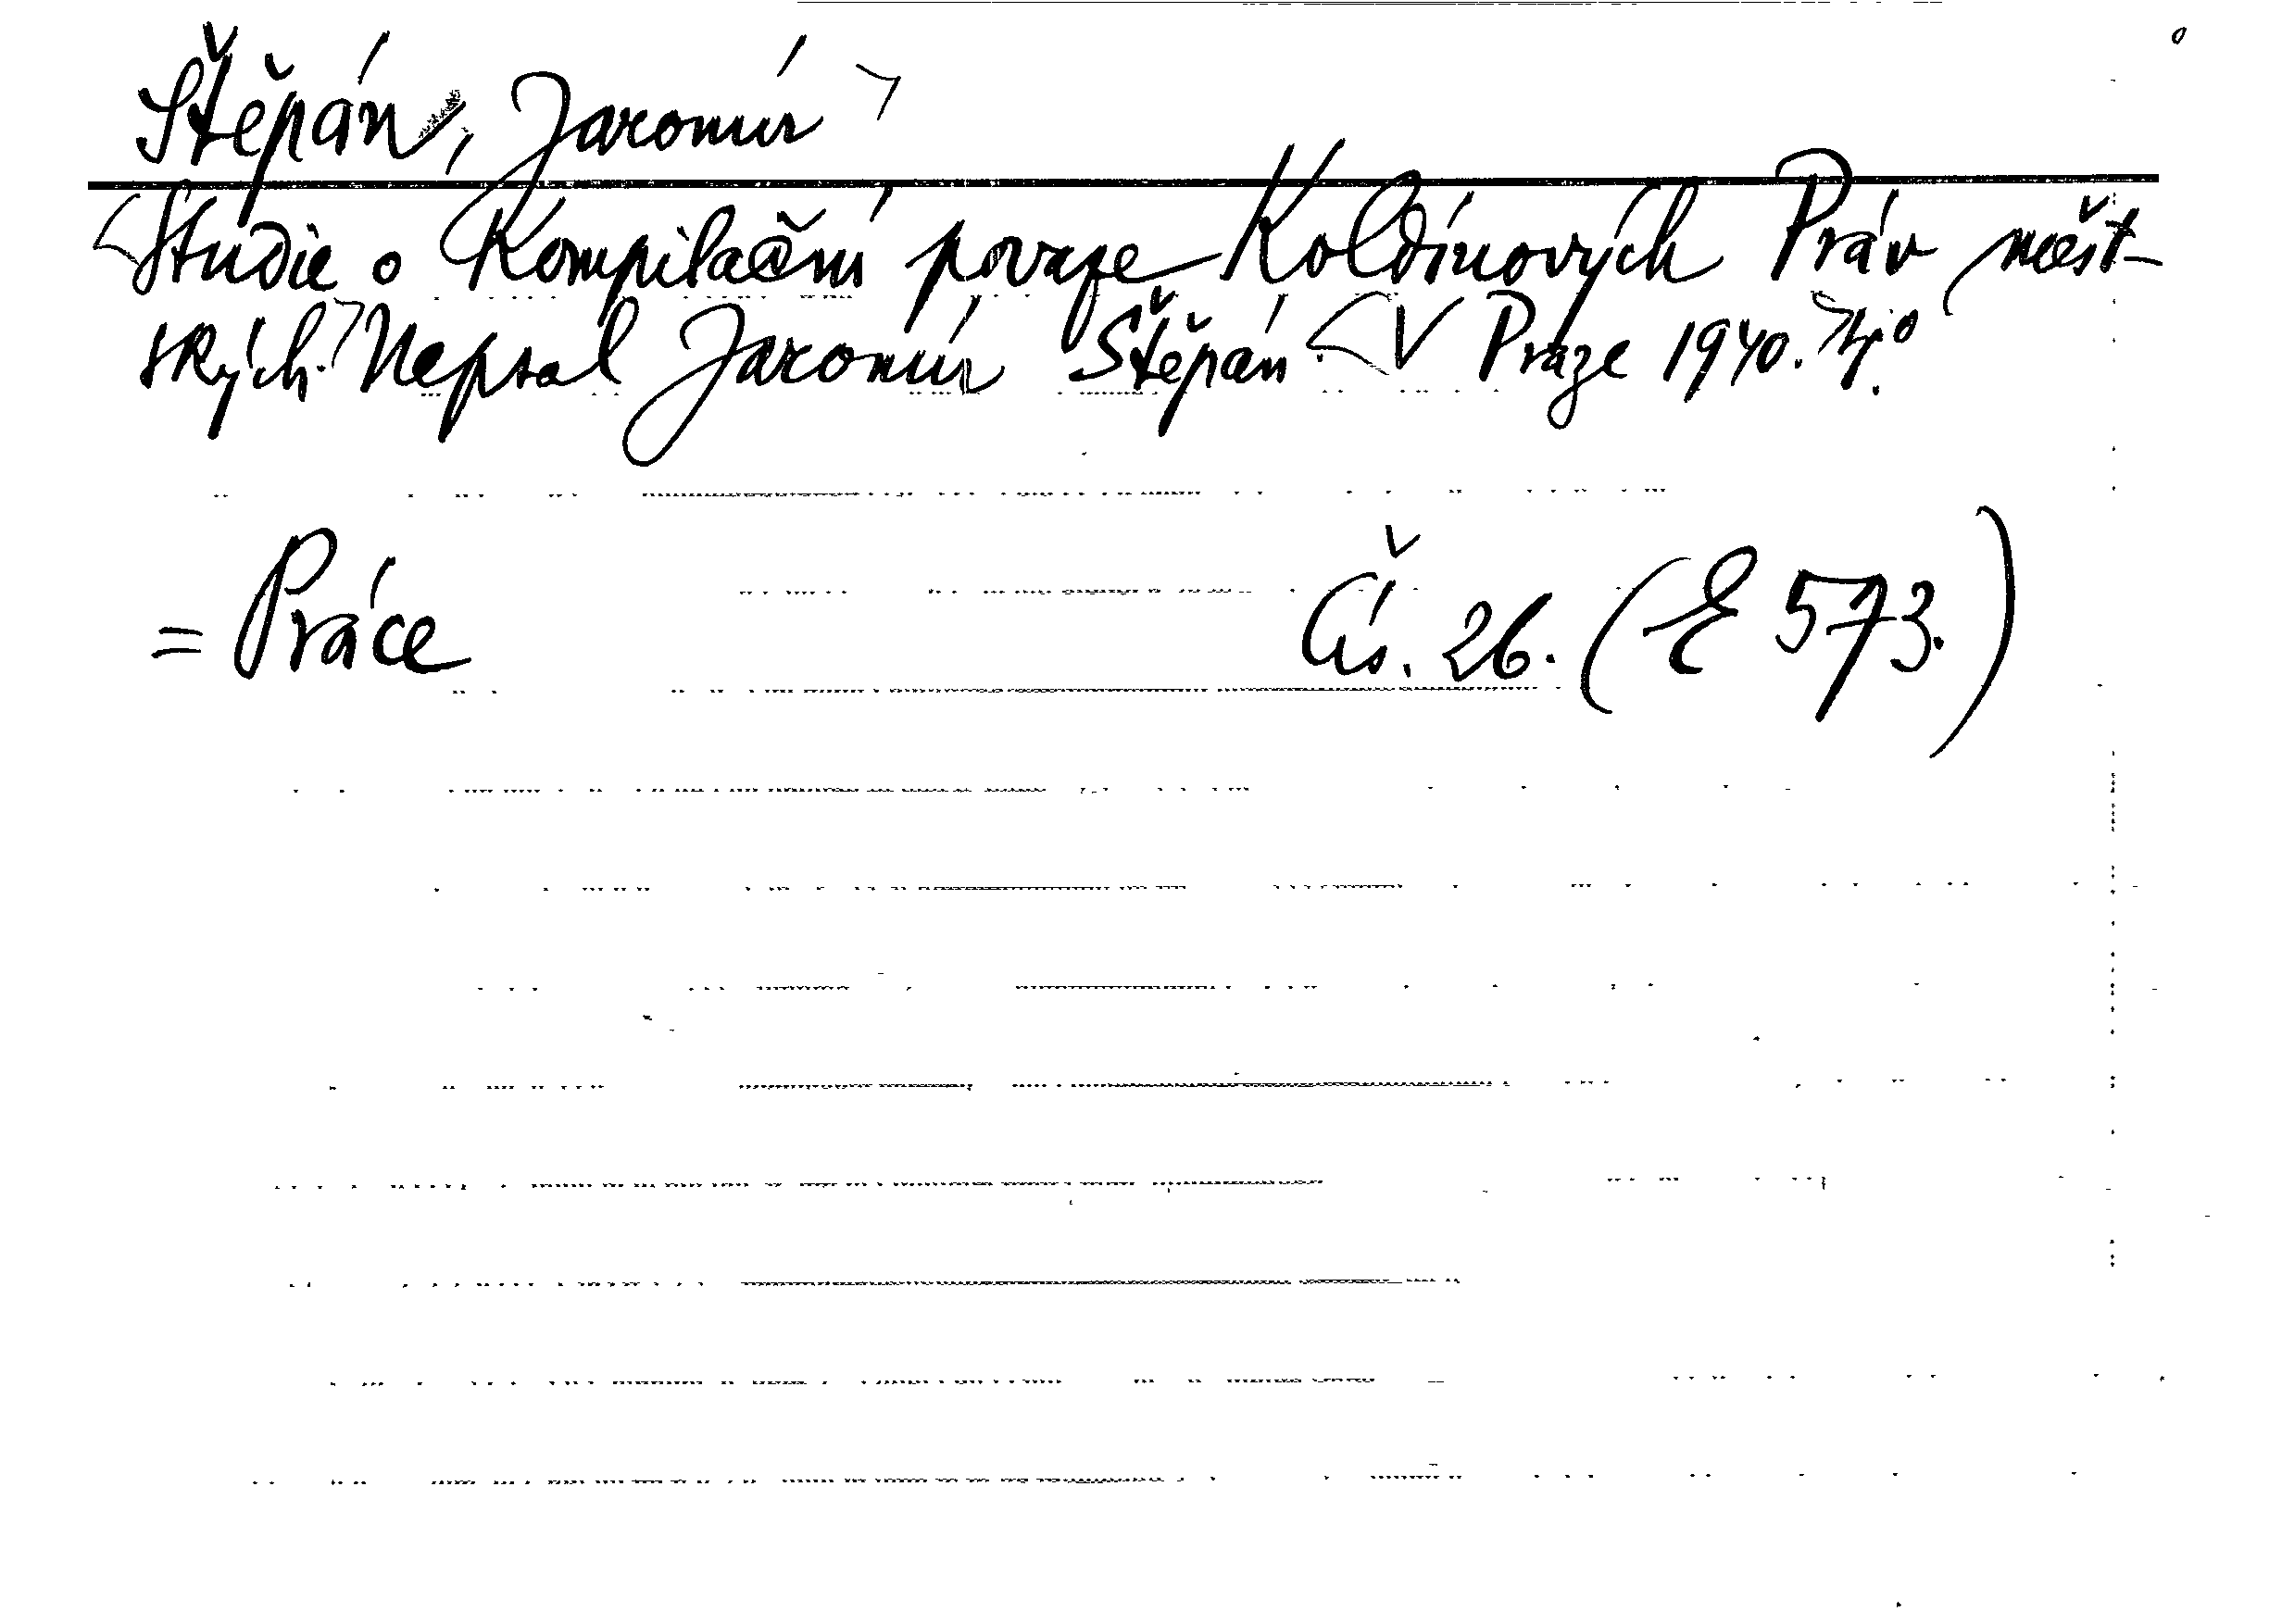 Štěpán, Jaromír
Studie o kompilační povaze Koldínových Práv měst-
ských. Napsal Jaromír Štěpán. V Praze 1940. 4°
= Práce Čís. 26. (E 573.)